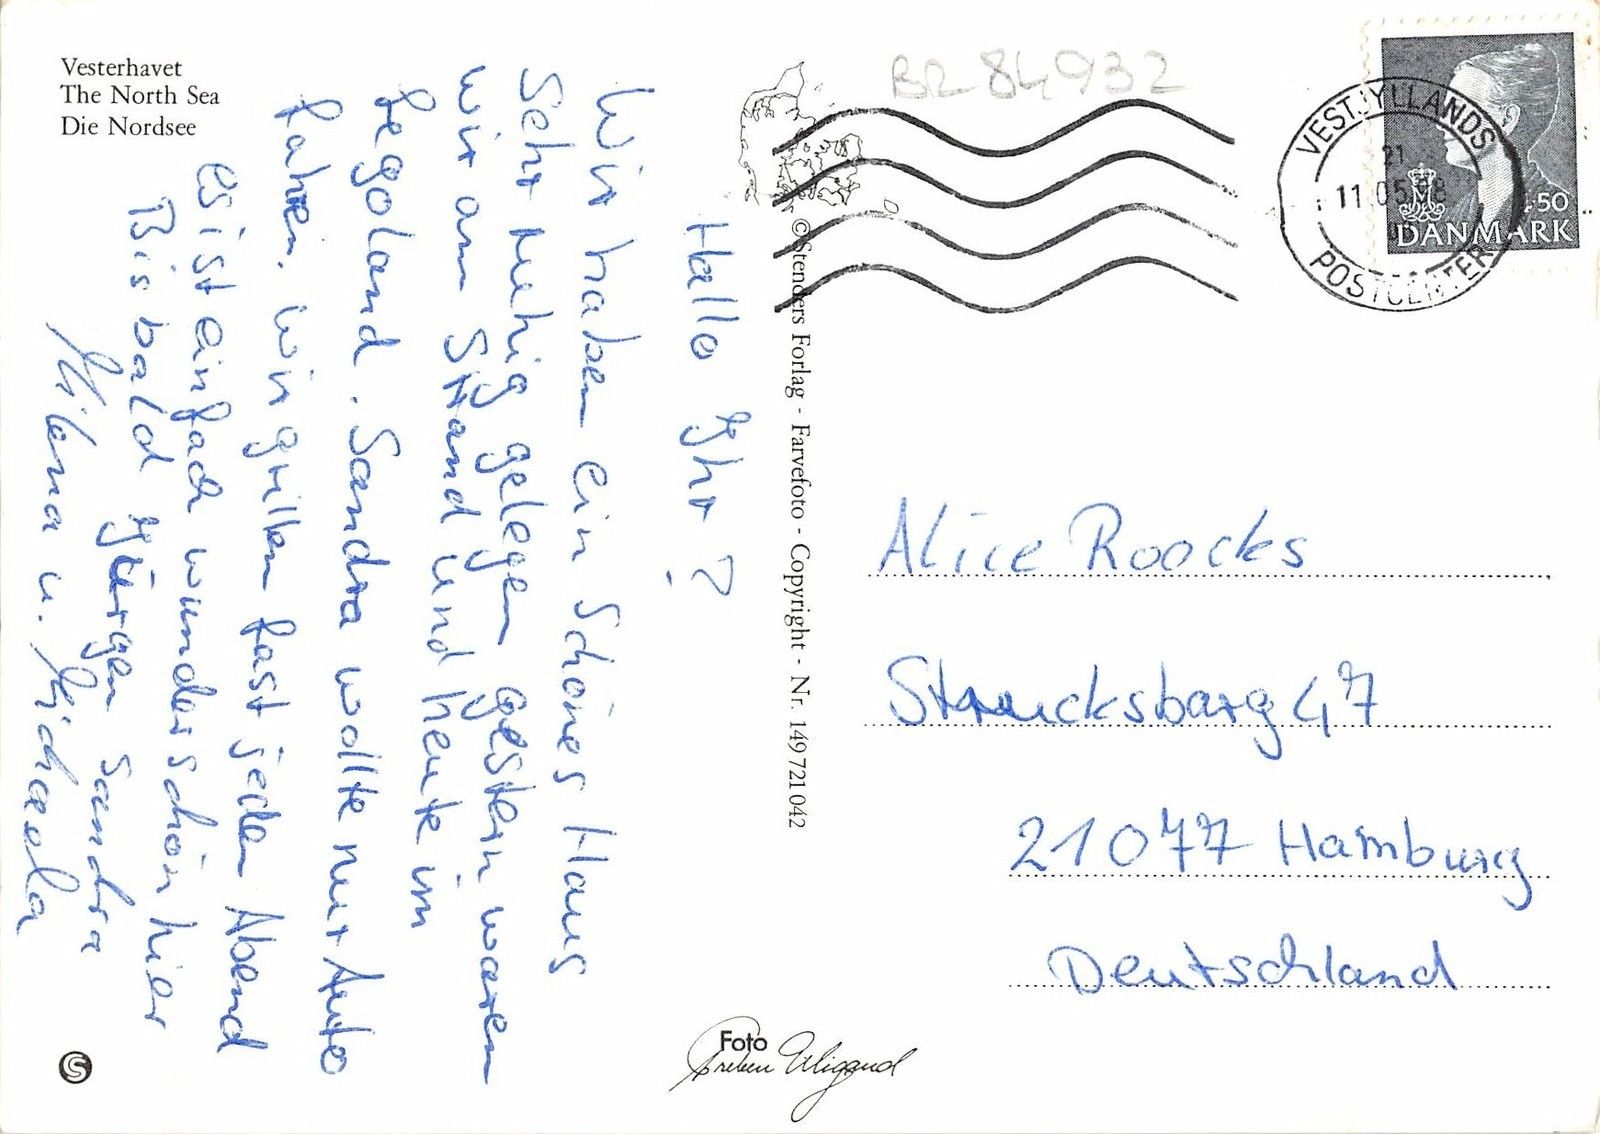 Vesterhavet
The North Sea
Die Nordsee
Hallo Ihr?
Wir haben ein schönes Haus
Sehr ruhig gelegen gestern waren
wir am Strand und heute im
Legoland. Sandra wollte nur Auto
fahren. Wir grillen fast jeden Abend
Es ist einfach wunderschön hier
Bis bald Jürgen Sandra
Milena u. Michaela
© Stenders Forlag - Farvefoto - Copyright - Nr. 149 721 042
BR 84932
VESTJYLLANDS
21
11.05.98
POSTCENTER
4.50
DANMARK
Alice Roocks
Strucksbarg 47
21077 Hamburg
Deutschland
Foto
Preben Wigand
S